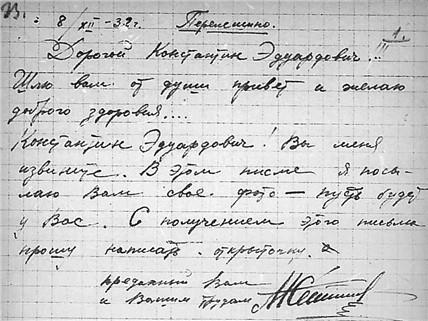 8/XII - 32 г. Перемешино.
1.
Дорогой Константин Эдуардович!!!
Шлю вам от души привет и желаю
доброго здоровия....
Константин Эдуардович! Вы меня
извините. В этом письме я посы-
лаю Вам свое фото — пусть будет
у Вас. С получением этого письма
прошу написать открыточку.
преданный Вам
и Вашим трудам